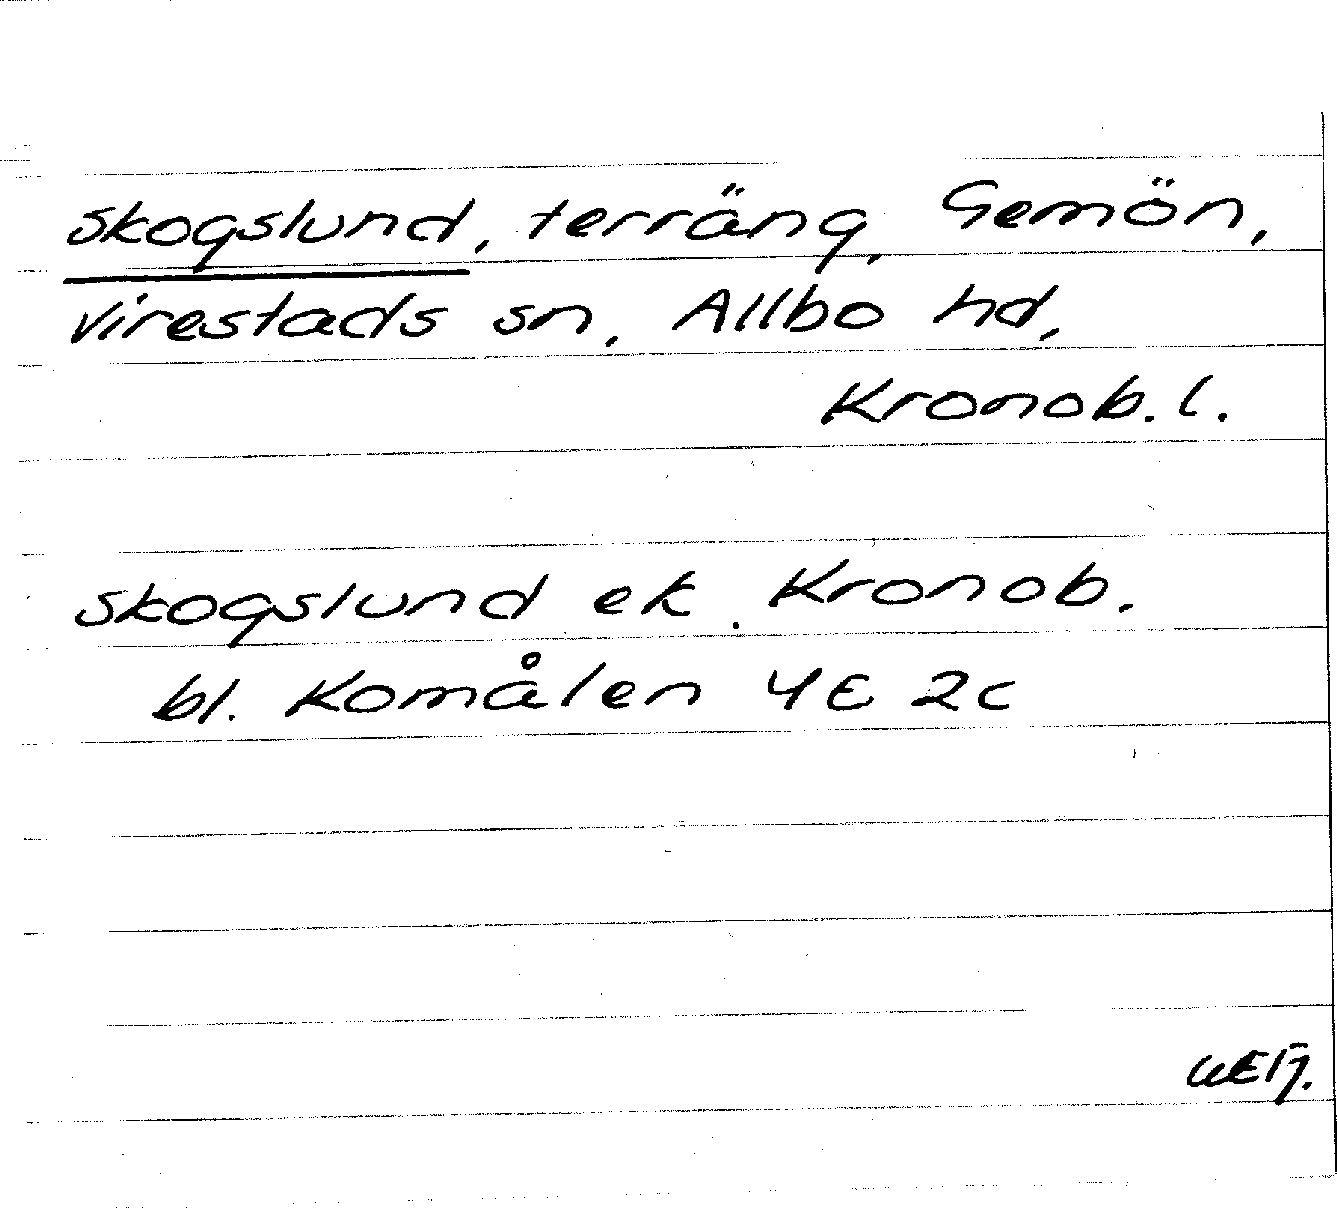 Skogslund, terräng, Gemön,
Virestads sn, Allbo hd,
Kronob. l.
Skogslund ek. Kronob.
bl. Komålen 4E 2c